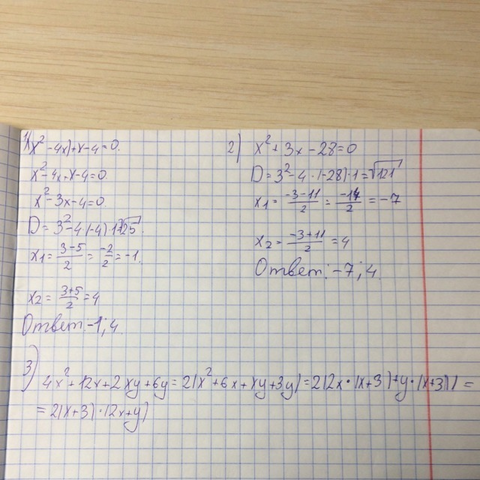 1) (x² - 4x) + x - 4 = 0.
x² - 4x + x - 4 = 0
x² - 3x - 4 = 0
D = 3² - 4·(-4)·1 = √25.
x₁ = (3-5)/2 = -2/2 = -1.
x₂ = (3+5)/2 = 4
Ответ: -1; 4
2) x² + 3x - 28 = 0
D = 3² - 4·(-28)·1 = √121
x₁ = (-3-11)/2 = -14/2 = -7
x₂ = (-3+11)/2 = 4
Ответ: -7; 4.
3) 4x² + 12x + 2xy + 6y = 2(x² + 6x + xy + 3y) = 2(2x·(x+3) + y·(x+3)) =
= 2(x+3)·(2x+y)